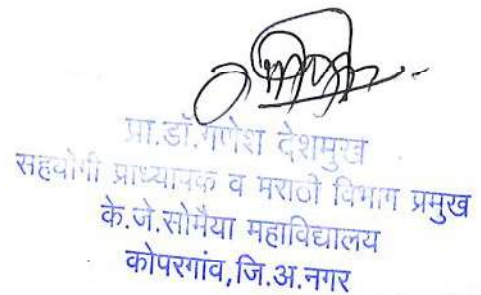 प्रा.डॉ.गणेश देशमुख
सहयोगी प्राध्यापक व मराठी विभाग प्रमुख
के.जे.सोमैया महाविद्यालय
कोपरगांव,जि.अ.नगर